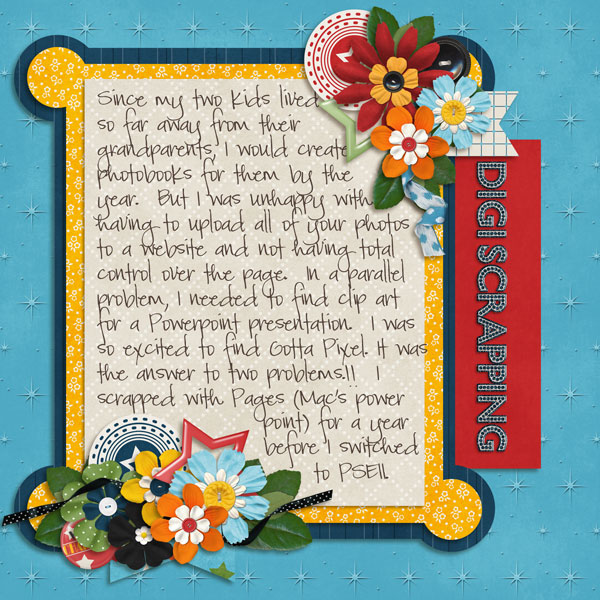 Since my two kids lived
so far away from their
grandparents, I would create
photobooks for them by the
year. But I was unhappy with
having to upload all of your photos
to a website and not having total
control over the page. In a parallel
problem, I needed to find clip art
for a Powerpoint presentation. I was
so excited to find Gotta Pixel. It was
the answer to two problems!! I
scrapped with Pages (Mac's power
point) for a year
before I switched
to PSE11.
DIGI SCRAPPING